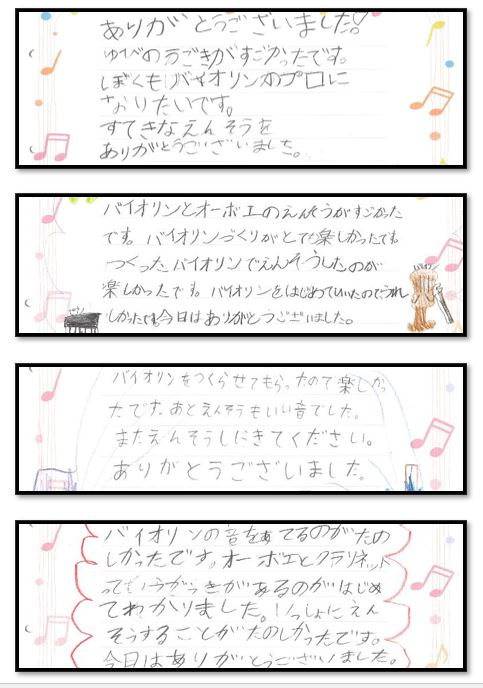 ありがとうございました♡
ゆびのうごきがすごかったです。
ぼくもバイオリンのプロに
なりたいです。
すてきなえんそうを
ありがとうございました。
バイオリンとオーボエのえんそうがすごかった
です。バイオリンづくりがとても楽しかったです。
つくったバイオリンでえんそうしたのが
楽しかったです。バイオリンをはじめてひいたのでうれ
しかったです。今日はありがとうございました。
バイオリンをつくらせてもらったので楽しかっ
たです。あとえんそうもいい音でした。
またえんそうしにきてください。
ありがとうございました。
バイオリンの音をあてるのがたの
しかったです。オーボエとクラリネット
っていうがっきがあるのがはじめ
てわかりました。いっしょにえん
そうすることがたのしかったです。
今日はありがとうございました。